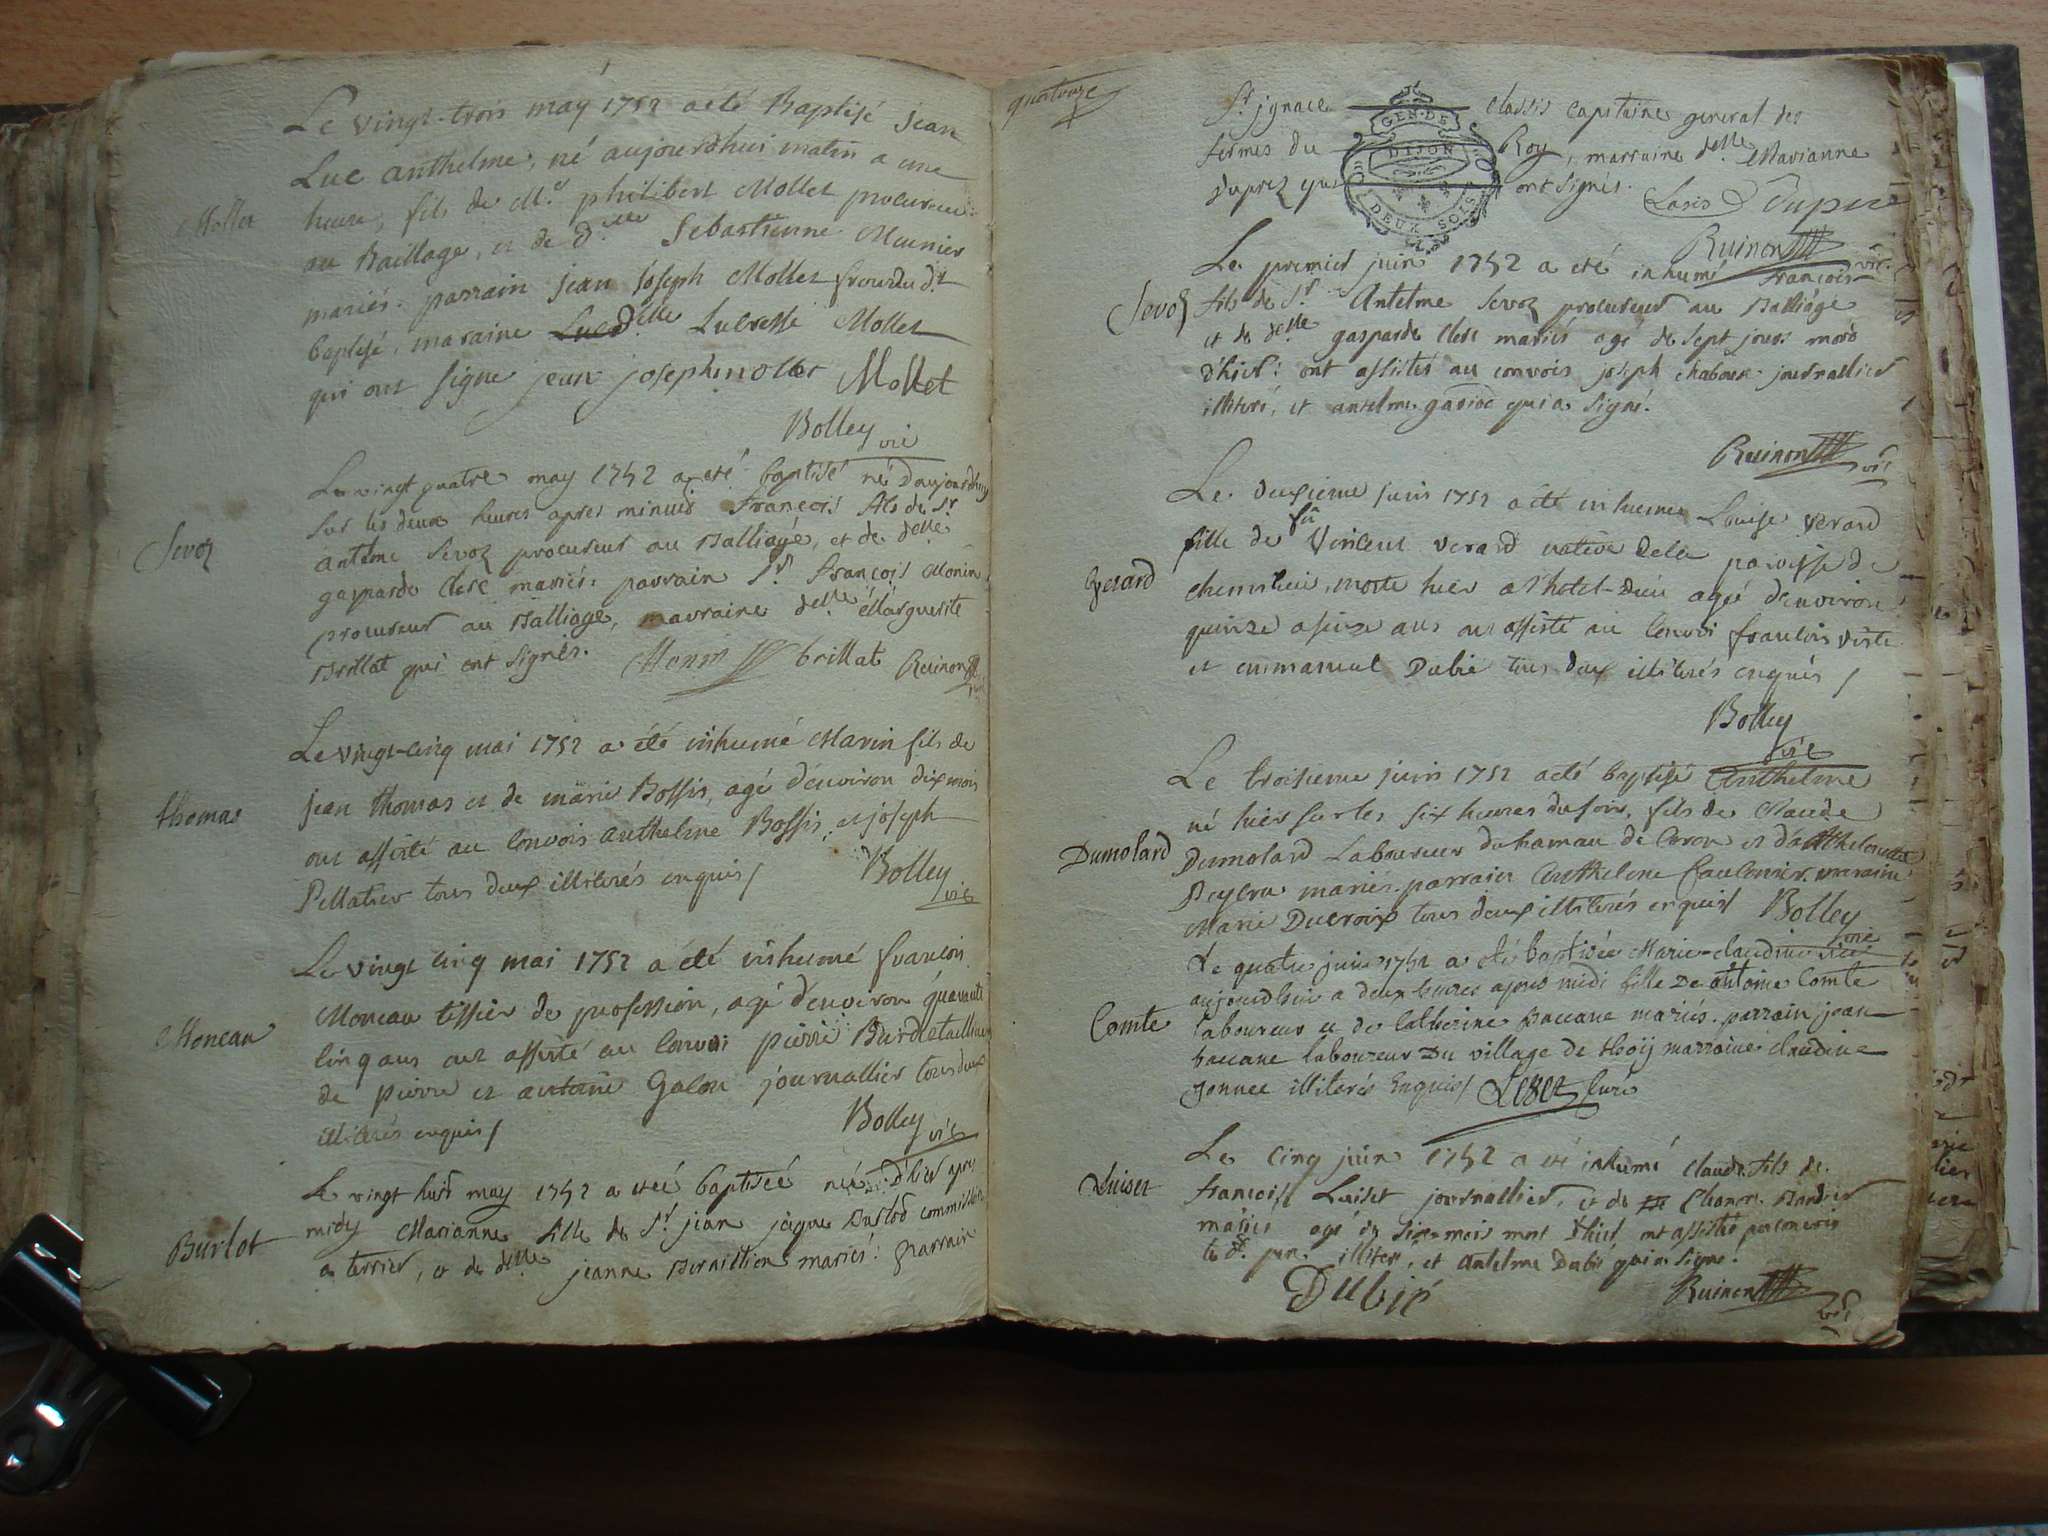 Mollet
Le vingt-trois may 1752 a eté Baptisé jean
Luc anthelme, né aujourdhui matin a une
heure, fils de Me. philibert Mollet procureur
au Baillage, et de delle Sebastienne Meunier
mariés. parrain jean joseph Mollet du dt
baptisé, maraine delle Lucresse Mollet
qui ont signe jean joseph mollet Mollet
Bolley vic
Sevoz
Le vingt quatre may 1752 a eté baptisé né d'aujourdhuy
sur les deux heures apres minuid François fils de Sr
antelme Sevoz procureur au Balliage, et de delle
gasparde Clerc mariés: parrain Sr. François Monin
procureur au Balliage, marraine delle Marguerite
Brillat qui ont signés. Monin brillat Ruinon
vic
thomas
Le vingt-cinq mai 1752 a été inhumé Marin fils de
jean thomas et de marie Bossis, agé d'environ dix mois
ont assisté au Convois anthelme Bossis, et joseph
Pellatier tous deux illiterés enquis/ Bolley
vic
Moncau
Le vingt cinq mai 1752 a été inhumé francois
Moncau tissier de profession, agé d'environ quarante
cinq ans ont assisté au Convoi pierre
de pierre et antoine Galon journallier tous deux
illiterés enquis/ Bolley vic
Burlot
Le vingt huit may 1752 a eteé baptiseé neé d'hier apres
midy Marianne fille de Sr. jean jaque Burlod commissaire
a terrier, et de delle jeanne mariés: parrain
quatorze
Sr. jgnace Classis Capitaine general des
fermes du Roy, marraine delle. Marianne
Dupuez qui ont signés.
GEN. DE
DIJON
DEUX SOLS
Ruinon vic.
Sevoz
Le premier juin 1752 a eté inhumé François
fils de Sr. Antelme Sevoz procureur au Balliage
et de delle gasparde Clerc mariés agé de sept jours mord
d'hier: ont assistés au convois joseph chaboux journallier
illiteré, et antelme qui a signé.
Ruinon vic
Verard
Le deuxieme juin 1752 a été inhumée Louise Verard
fille de fû Vincent Verard native dela paroisse de
morte hier a l'hotel-Dieu agée d'environ
quinze a seize ans ont assisté au Convoi francois
et emmanuel Dubié tous deux illiterés enquis/
Bolley
vic
Dumolard
Le troisieme juin 1752 a eté baptisé Anthelme
né hier sur les six heures du soir, fils de Claude
Dumolard Laboureur du hamau de Coron et d'
Peysru mariés. parrain Anthelme maraine
Marie Ducroix tous deux illiterés enquis/ Bolley
vic
Comte
Le quatre juin 1752 a été baptisée Marie-claudine née
aujourdhui a deux heures apres midi fille De antoine Comte
laboureur et de Catherine Baccane mariés. parrain jean
baccane laboureur Du village de marraine claudine
jonnee illiterés Enquis/ curé
Luiset
Le cinq juin 1752 a eté inhumé claude fils de
françois Luiset journallier, et de
mariés agé de six-mois mort d'hier ont assistés
illiteré, et antelme Dubié qui a signé.
Dubié
Ruinon vic